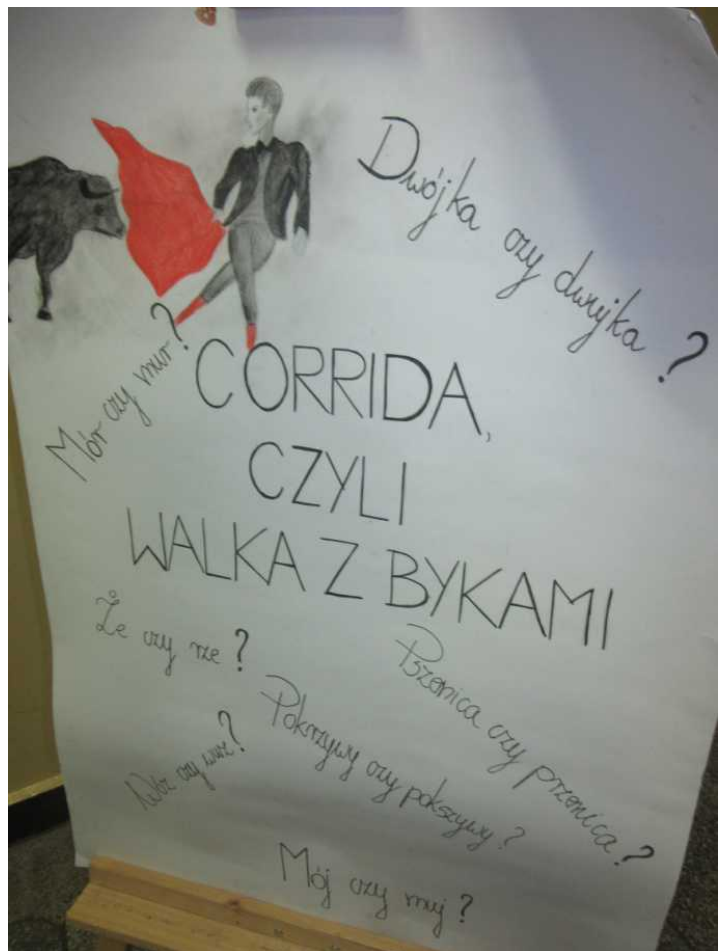 Dwójka czy dwujka?
Mór czy mur?
CORRIDA,
CZYLI
WALKA Z BYKAMI
Że czy rze?
Pszenica czy przenica?
Pokrzywy czy pokszywy?
Wóz czy wuz?
Mój czy muj?